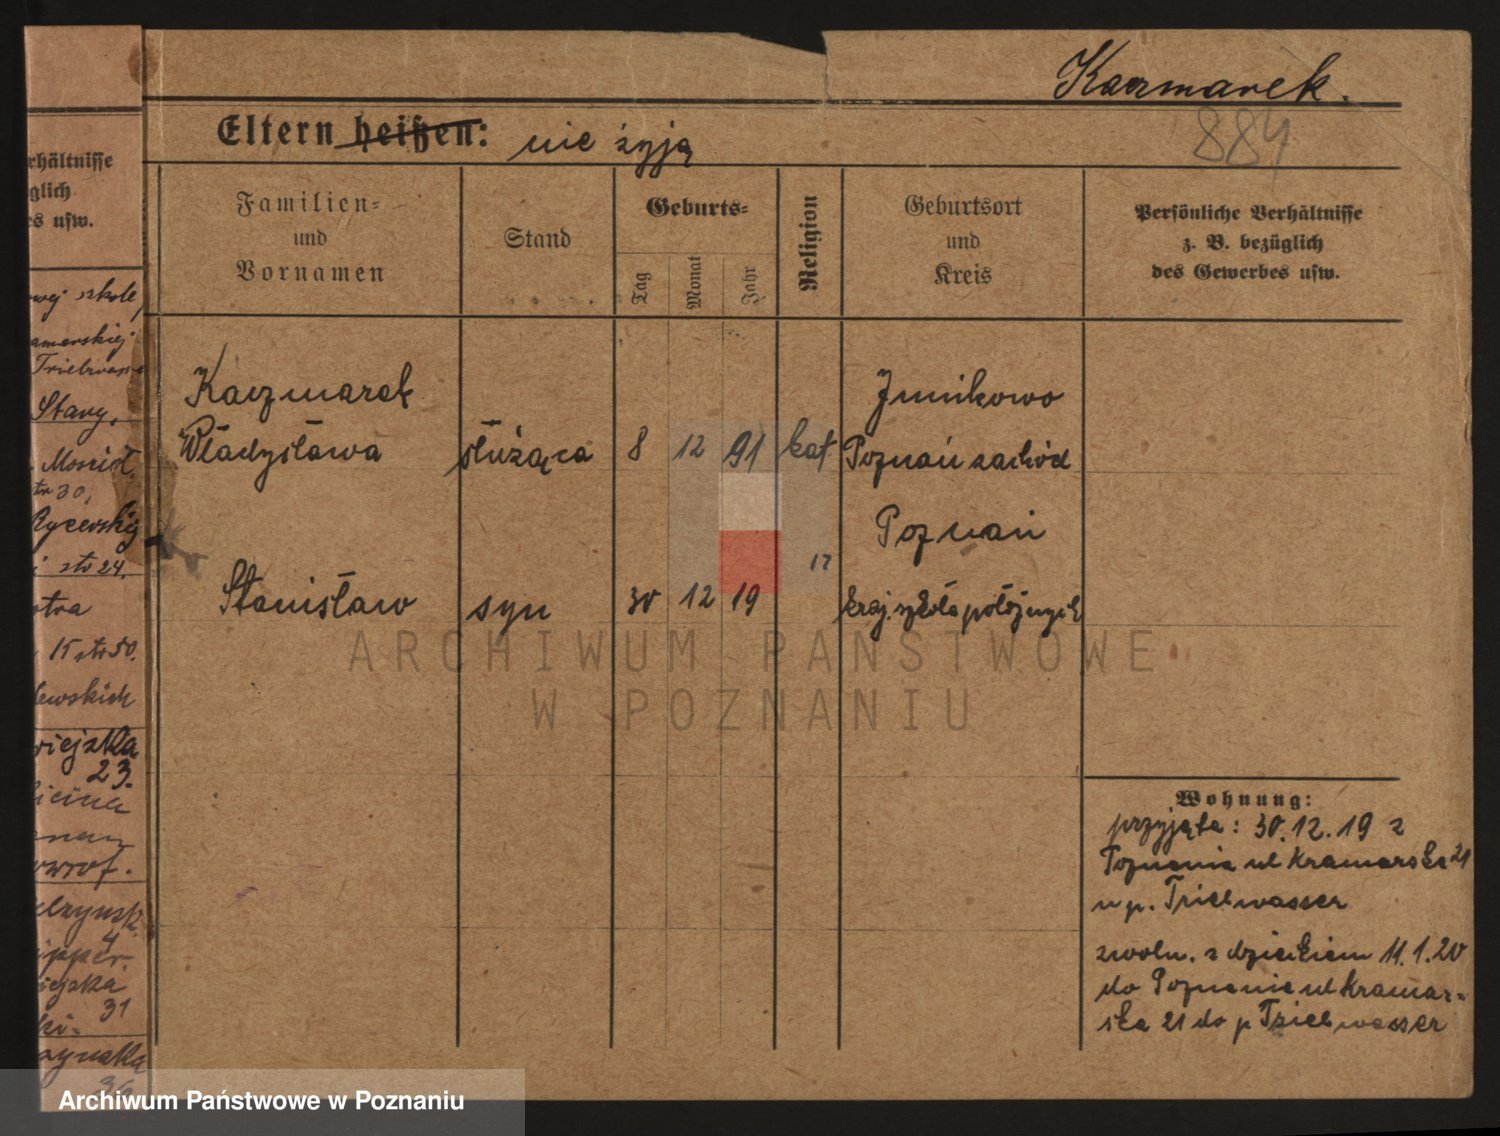 Kaczmarek.
884
Eltern heißen: nie żyją
Familien- und Vornamen
Stand
Geburts-
Tag
Monat
Jahr
Religion
Geburtsort und Kreis
Persönliche Verhältnisse z. B. bezüglich des Gewerbes usw.
Kaczmarek
Żmikowo
Władysława służąca 8 12 91 kat Poznań zachód
Poznań
17
Stanisław syn 30 12 19 kraj. szkoła położnych
Wohnung:
przyjęta: 30.12.19 z
Poznania ul Kramarska 21
u p. Trielwasser
zwoln. z dzieckiem 11.1.20
do Poznania ul Kramar-
ska 21 do p Trielwasser
rhältnisse
glich
es usw.
wej szkole
amarskiej
Stary,
str 30,
str 24.
15 str 50.
23.
4
31
36
ARCHIWUM PAŃSTWOWE
W POZNANIU
Archiwum Państwowe w Poznaniu